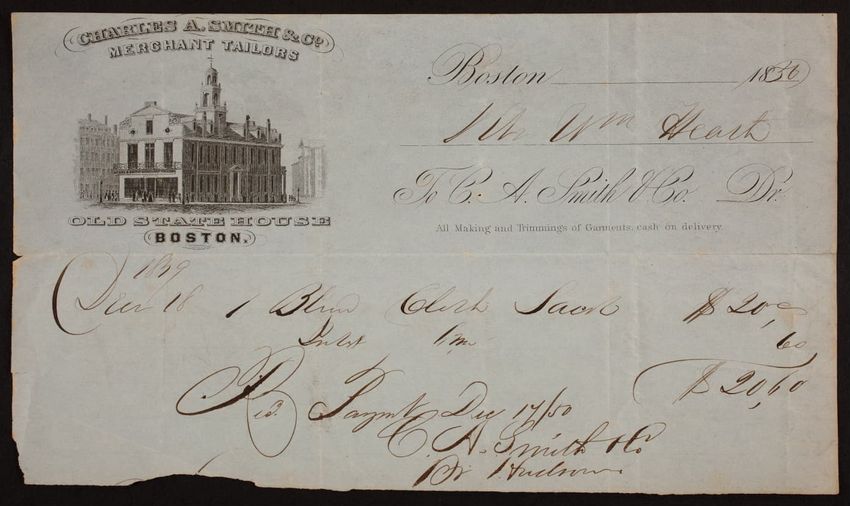 CHARLES A. SMITH & Co.
MERCHANT TAILORS
OLD STATE HOUSE
BOSTON.
Boston 1850
Wm Heath
To C. A. Smith & Co. Dr.
All Making and Trimmings of Garments, cash on delivery.
1849
18 1 Blue Cloth Sack $ 20,00
Intst 60
$ 20,60
Rec'd. Paymt 17/50
C. A. Smith & Co